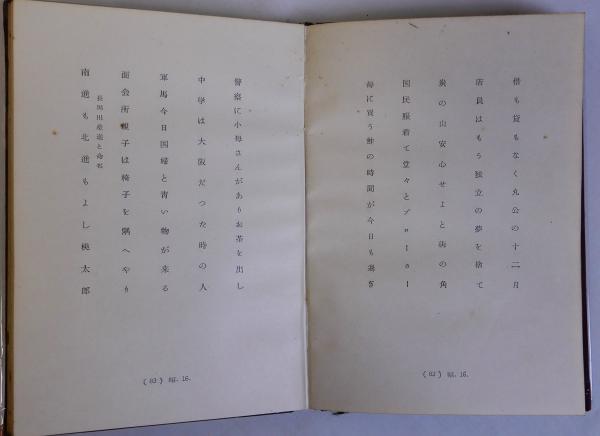 借も貸もなく丸公の十二月
店員はもう独立の夢を捨て
炭の山安心せよと街の角
国民服着て堂々と
に買う の時間が今日も過ぎ
(82) 昭.16.
警察に小母さんがありお茶を出し
中学は大阪だつた時の人
軍馬今日国婦と青い物が来る
面会所親子は椅子を隅へやり
と命名
南進も北進もよし桃太郎
(83) 昭.16.